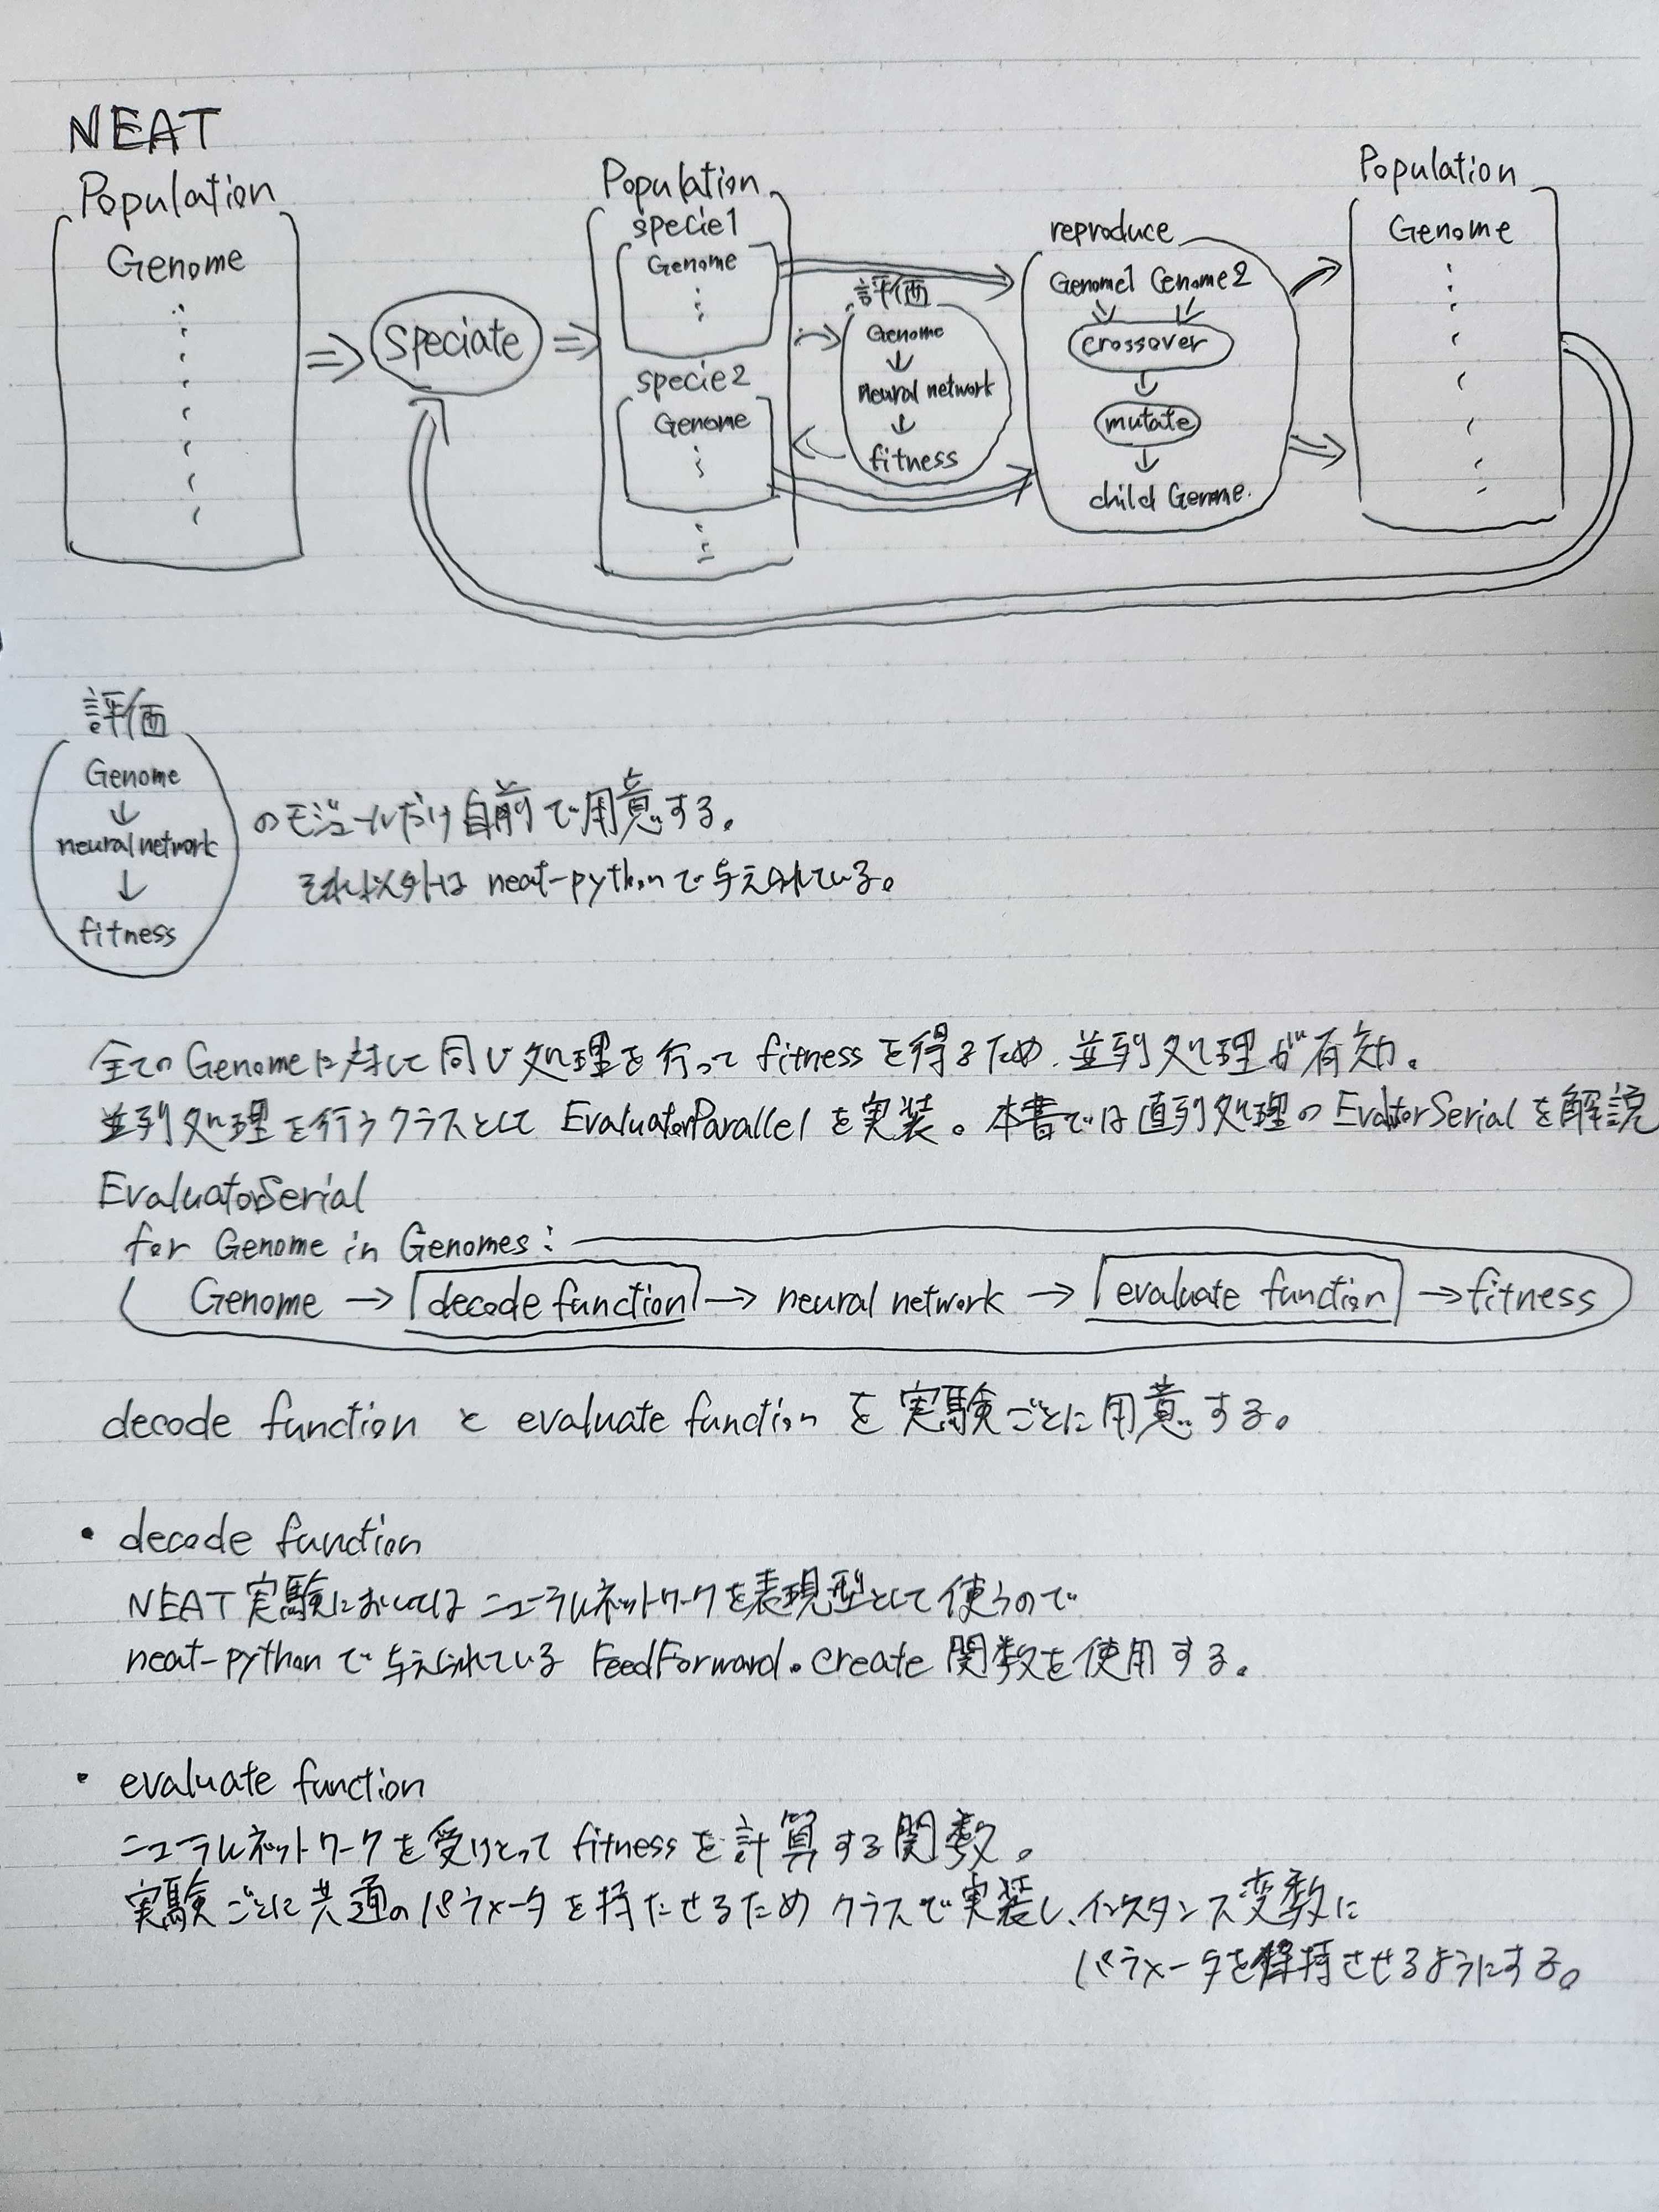 NEAT
Population
Genome
speciate
Population
specie1
Genome
specie2
Genome
評価
Genome
neural network
fitness
reproduce
Genome1 Genome2
crossover
mutate
child Genome.
Population
Genome
評価
Genome
neural network
fitness
のモジュールだけ自前で用意する。
それ以外は neat-pythonで与えられている。
全てのGenomeに対して同じ処理を行って fitnessを得るため、並列処理が有効。
並列処理を行うクラスとして EvaluatorParallelを実装。本書では直列処理のEvaluatorSerialを解説
EvaluatorSerial
for Genome in Genomes:
Genome → decode function → neural network → evaluate function → fitness
decode function と evaluate function を実験ごとに用意する。
・ decode function
NEAT実験においてはニューラルネットワークを表現型として使うので
neat-pythonで与えられている FeedForward.create関数を使用する。
・ evaluate function
ニューラルネットワークを受けとって fitnessを計算する関数。
実験ごとに共通のパラメータを持たせるためクラスで実装し、インスタンス変数に
パラメータを保持させるようにする。